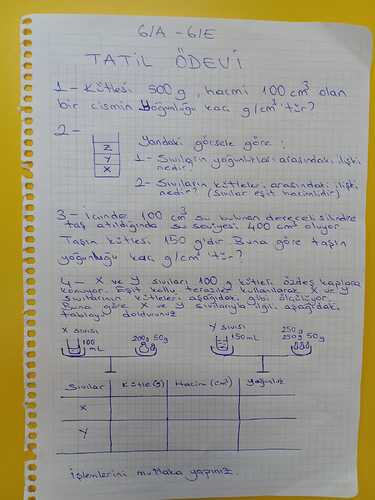 6/A - 6/E
TATİL ÖDEVİ
1 - Kütlesi 500 g, hacmi 100 cm³ olan
bir cismin yoğunluğu kaç g/cm³ tür?
2 -
Z
Y
X
Yandaki görsele göre;
1- Sıvıların yoğunlukları arasındaki ilişki
nedir?
2- Sıvıların kütleleri arasındaki ilişki
nedir? (sıvılar eşit hacimlidir)
3 - İçinde 100 cm³ su bulunan dereceli silindire
taş atıldığında su seviyesi 400 cm³ oluyor
Taşın kütlesi 150 g'dır. Buna göre taşın
yoğunluğu kaç g/cm³ tür?
4 - X ve Y sıvıları 100 g kütleli özdeş kaplara
konuyor. Eşit kollu teraziler kullanılarak X ve Y
sıvılarının kütleleri aşağıdaki gibi ölçülüyor.
Buna göre X ve Y sıvılarıyla ilgili aşağıdaki
tabloyu doldurunuz
X sıvısı
100 mL
200g 50g
Y sıvısı
150 mL
250 g
250g 50g
Sıvılar Kütle (g) Hacim (cm³) Yoğunluk
X
Y
İşlemlerini mutlaka yapınız.